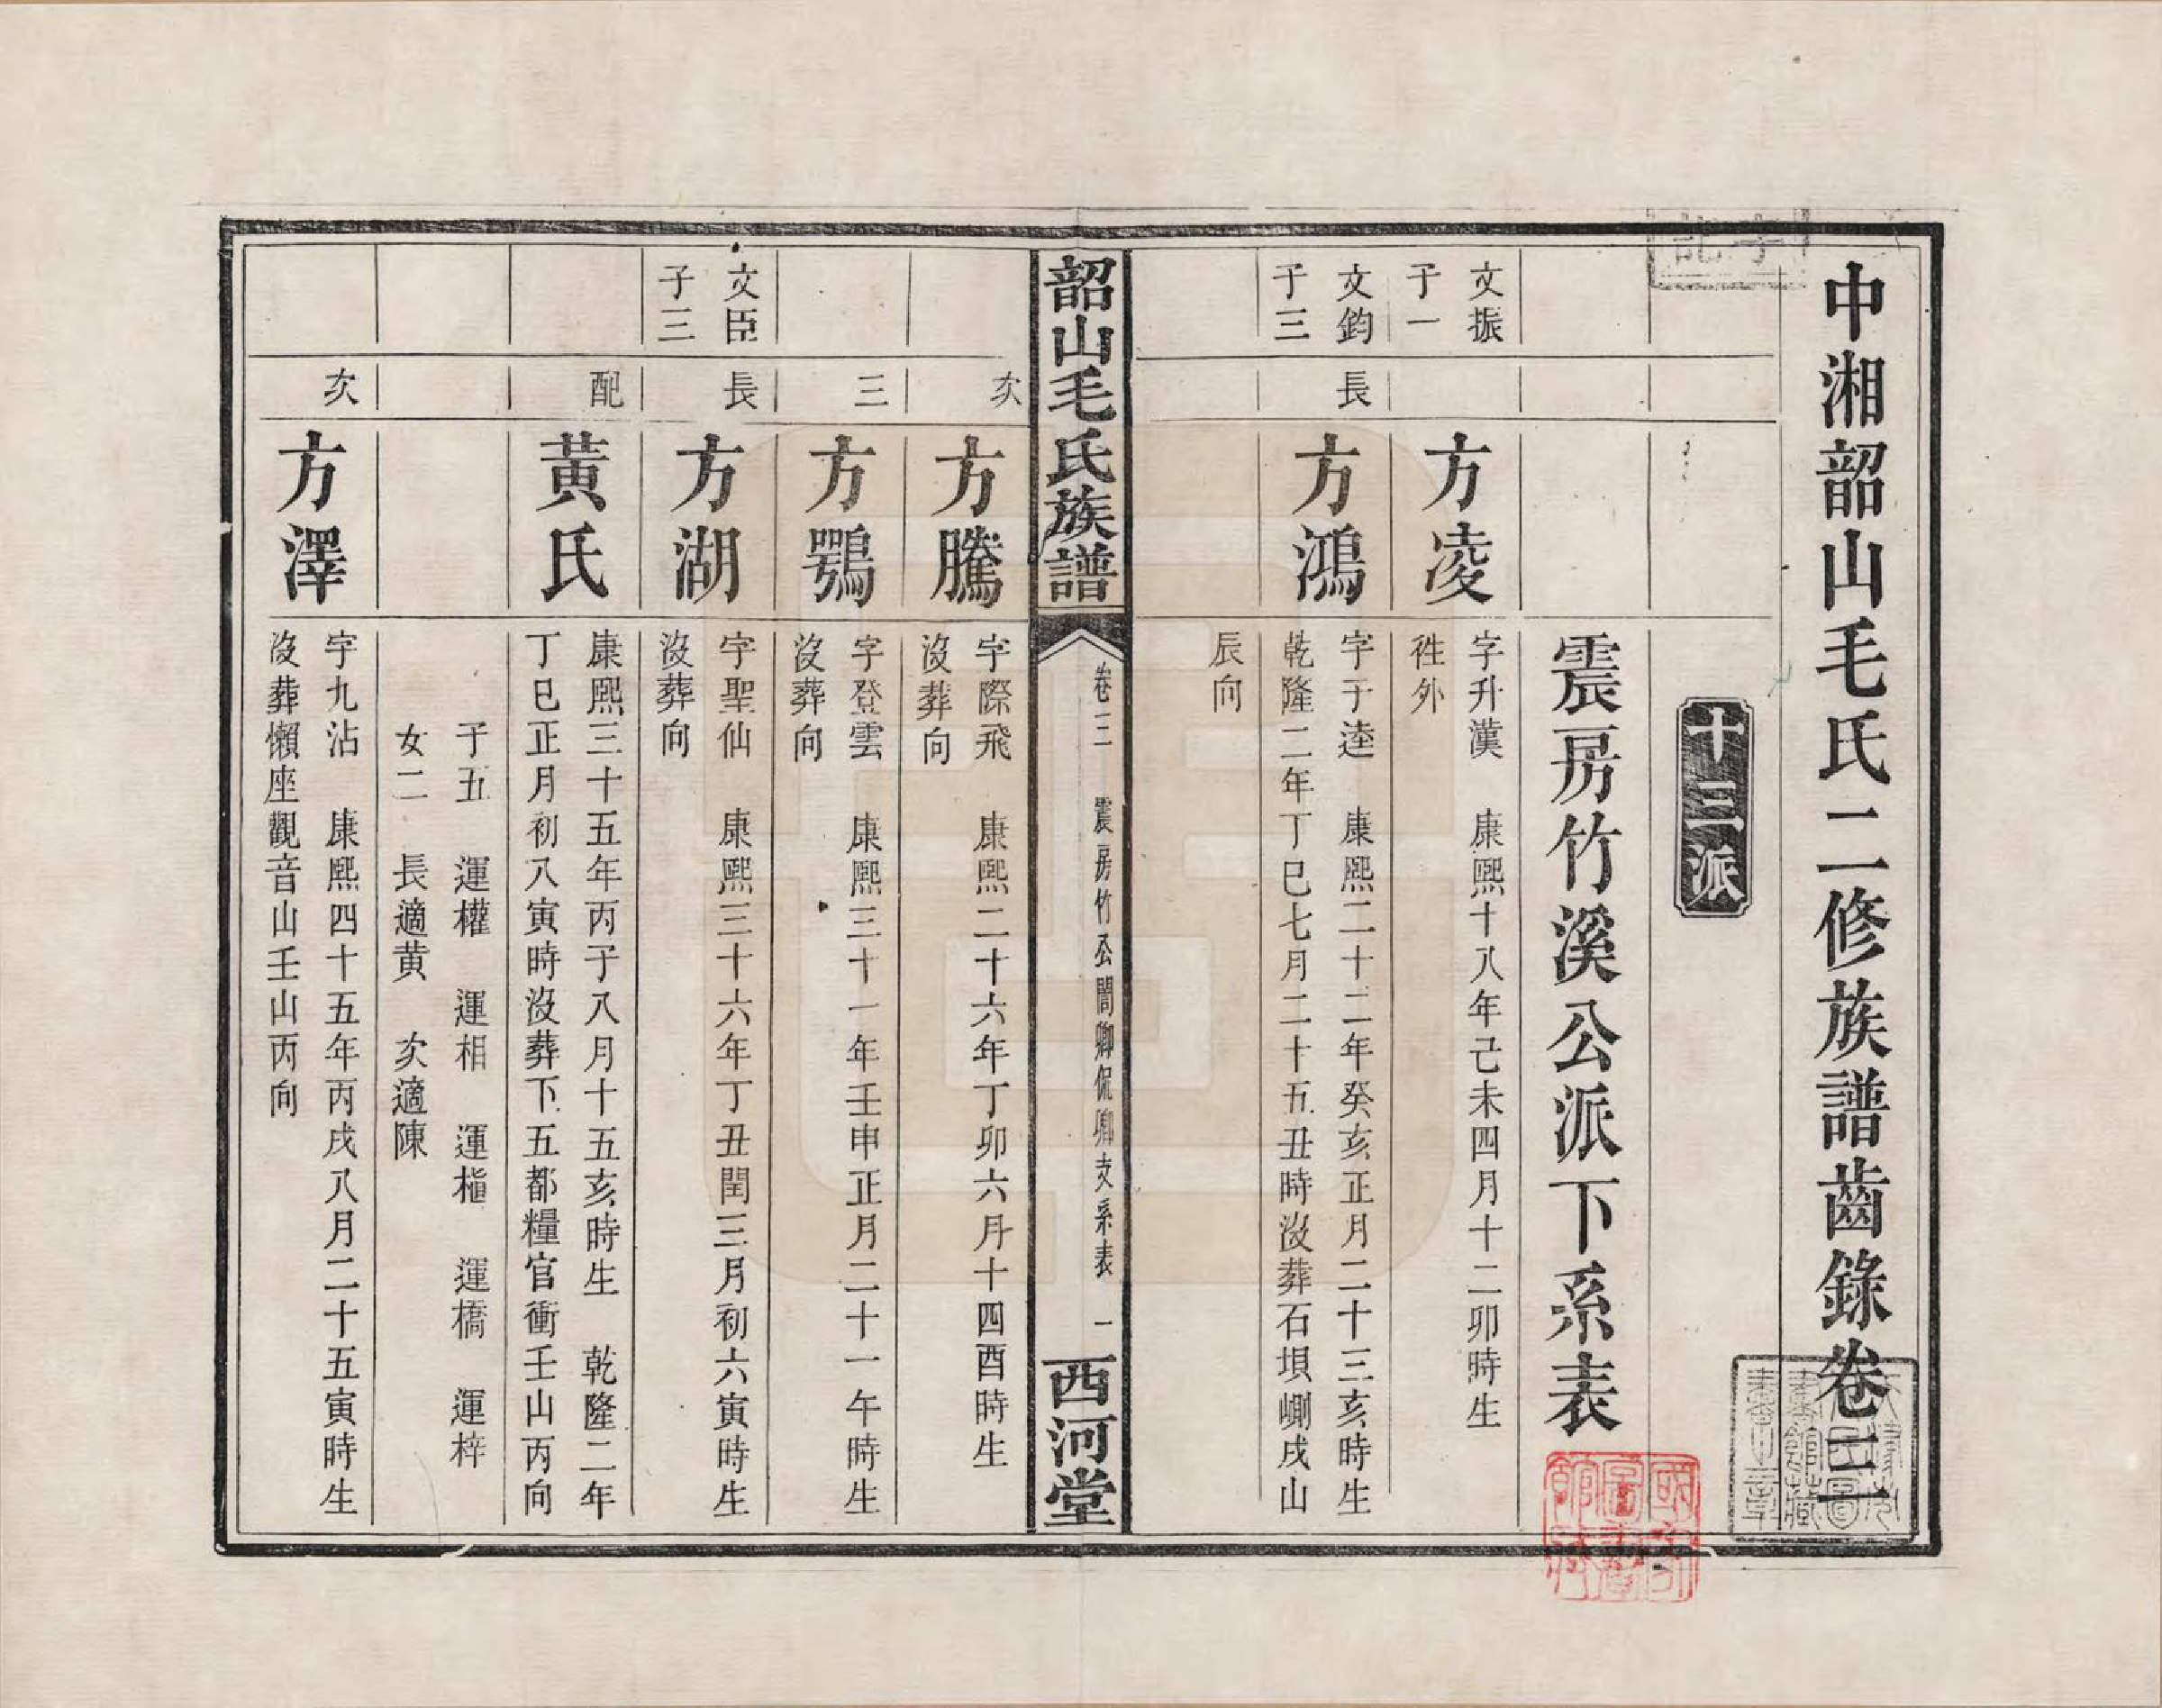 中湘韶山毛氏二修族譜齒錄卷三
十三派
震房竹溪公派下系表
文振
子一
方凌
字升漢　康熙十八年己未四月十二卯時生
徃外
文鈞
子三
長
方鴻
字于逵　康熙二十二年癸亥正月二十三亥時生
乾隆二年丁巳七月二十五丑時沒葬石垻嵴戌山
辰向
韶山毛氏族譜
卷三　震房竹公閭卿侃卿支系表　一
西河堂
次
方騰
字際飛　康熙二十六年丁卯六月十四酉時生
沒葬向
三
方鶚
字登雲　康熙三十一年壬申正月二十一午時生
沒葬向
文臣
子三
長
方湖
字聖仙　康熙三十六年丁丑閏三月初六寅時生
沒葬向
配
黃氏
康熙三十五年丙子八月十五亥時生　乾隆二年
丁巳正月初八寅時沒葬下五都糧官衝壬山丙向
子五　運權　運相　運樞　運橋　運梓
女二　長適黄　次適陳
次
方澤
字九沾　康熙四十五年丙戌八月二十五寅時生
沒葬懶座觀音山壬山丙向